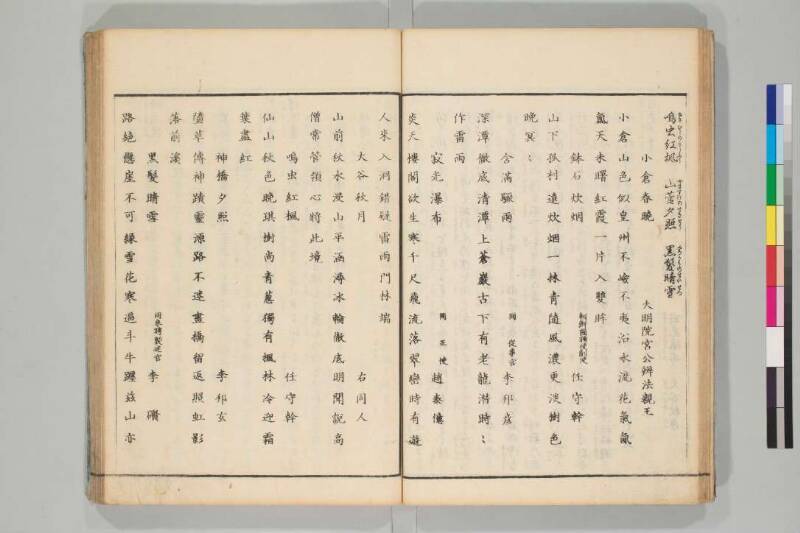 鳴虫紅楓　山菅夕照　黒髮晴雪
小倉春曉
大明院宮公辨法親王
小倉山色似皇州不嶮不夷沿水流花氣氤
氳天未曙紅霞一片入雙眸
鉢石炊烟
朝鮮國聘使副史　任守幹
山下孤村遠炊烟一抹青隨風濃更淡樹色
晚冥〻
含滿驟雨
同　從事官　李邦彦
深潭徹底清潭上蒼巖古下有老龍潛時〻
作雷雨
寂光瀑布
同　正使　趙泰億
炎天樓閣欲生寒千尺飛流落翠巒時有遊
人來入洞錯疑雷雨門林端
大谷秋月
右同人
山前秋水漫山平涵濟冰輪徹底明聞說高
僧常管領心將此境
鳴虫紅楓
任守幹
仙山秋色晚琪樹尚青蔥獨有楓林冷迎霜
葉盡紅
神橋夕照
李邦玄
傳神蹟靈源路不迷畫橋留返照虹影
落前溪
黒髮晴雪
同來聘製述官　李礥
路絕懸崖不可緣雪花寒逼斗牛躔茲山亦